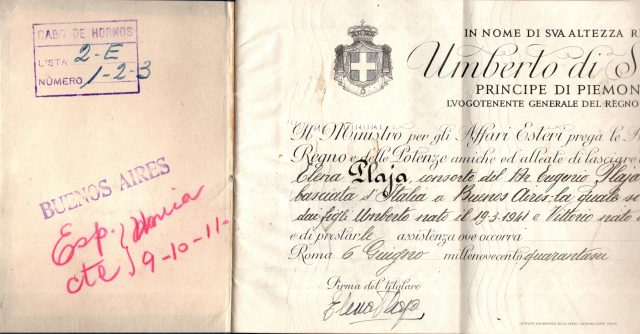 CABO DE HORNOS
LISTA 2-E
NÚMERO 1-2-3
BUENOS AIRES
Esp.
cte
9-10-11-
IN NOME DI SVA ALTEZZA R
Umberto di S
PRINCIPE DI PIEMON
LVOGOTENENTE GENERALE DEL REGNO
Il Ministro per gli Affari Esteri prega le
Regno e delle Potenze amiche ed alleate di lasciare
Elena Plaja, consorte del Eugenio Plaja
basciata d'Italia a Buenos Aires, la quale se
dai figli Umberto nato il 19.3.1941 e Vittorio nato
e di prestarle assistenza ove occorra
Roma 6 Giugno millenovecento quarantasei
Firma del titolare
Elena Plaja